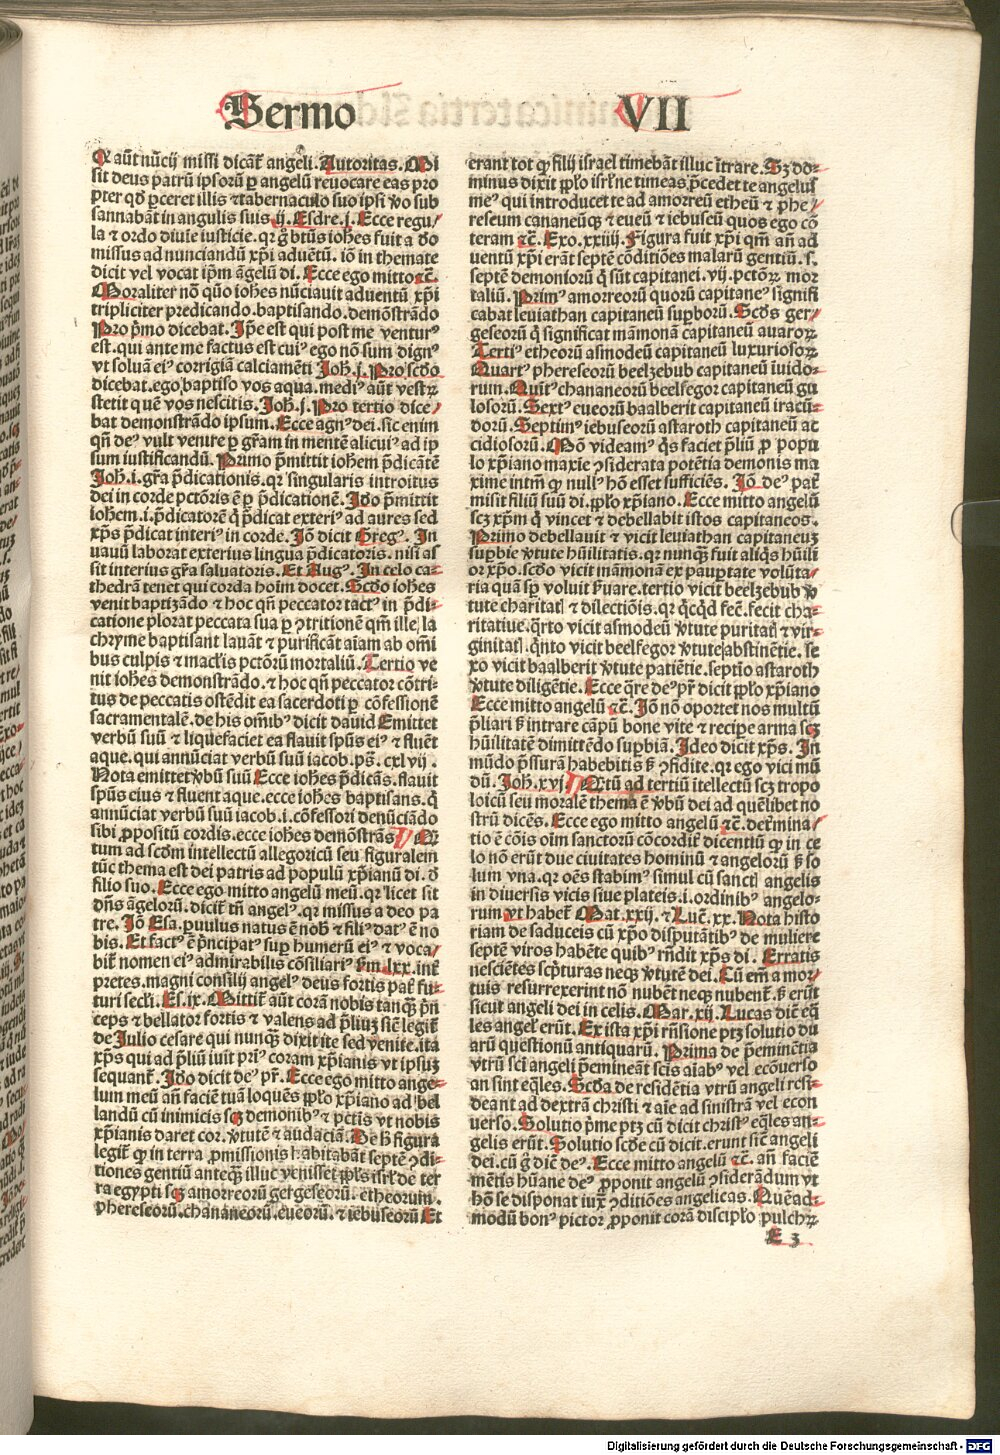 Sermo VII
Q aūt nūcij missi dicāt̄ angeli. Autoritas. Mi
sit deus patrū ipsorū ꝑ angelū reuocare eas pro
pter qđ ꝑceret illis ⁊ tabernaculo suo ipsi ꝟo sub
sannabāt in angulis suis .ij. Esdre. j. Ecce regu/
la ⁊ ordo diuīe iusticie. qr g̊ btūs ioh̄es fuit a do
missus ad nunciandū xp̄i aduētū. iō in themate
dicit vel vocat ip̄m āgelū di. Ecce ego mitto ⁊c̄.
Moraliter nō q̄uo ioh̄es nūciauit aduentū xp̄i
tripliciter predicando. baptisando. demōstrādo
Pro p̄mo dicebat. Ip̄e est qui post me venturꝰ
est. qui ante me factus est cuiꝰ ego nō sum dignꝰ
vt soluā eiꝰ corrigiā calciamēti Joh̄. j. Pro scd̄o
dicebat. ego baptiso vos aqua. mediꝰ aūt vestrꝝ
stetit quē vos nescitis. Joh̄. j. Pro tertio dice/
bat demonstrādo ipsum. Ecce agnꝰ dei. sic enim
qn̄ deꝰ vult venire ꝑ gr̄am in mentē alicuiꝰ ad ip
sum iustificandū. Primo p̄mittit ioh̄em p̄dicātē
Joh̄. i. gr̄a p̄dicationis. qr singularis introitus
dei in corde pctōris ē ꝑ p̄dicationē. Ido p̄mittit
ioh̄em .i. p̄dicatorē q̄ p̄dicat exteriꝰ ad aures sed
xp̄s p̄dicat interiꝰ in corde. Iō dicit Gregꝰ. In
uauū laborat exterius lingua p̄dicatoris. nisi as
sit interius gr̄a saluatoris. Et Augꝰ. In celo ca-
thedrā tenet qui corda hoīm docet. Scd̄o ioh̄es
venit baptizādo ⁊ hoc qn̄ peccator tactꝰ in p̄di-
catione plorat peccata sua ꝑ ꝯtritionē qm̄ ille la
chryme baptisant lauāt ⁊ purificāt aīam ab om̄i
bus culpis ⁊ maclis pctōrū mortaliū. Tertio ve
nit ioh̄es demonstrādo. ⁊ hoc qn̄ peccator cōtri-
tus de peccatis ostēdit ea sacerdoti ꝑ cōfessionē
sacramentalē. de his om̄ibꝰ dicit dauid Emittet
verbū suū ⁊ liquefaciet ea flauit sp̄us eiꝰ ⁊ fluēt
aque. qui annūciat verbū suū iacob. ps̄. cxl vij.
Nota emittet ꝟbū suū Ecce ioh̄es p̄dicās. flauit
sp̄us eius ⁊ fluent aque. ecce ioh̄es baptisans. q̄
annūciat verbū suū iacob .i. cōfessori denūciādo
sibi ꝓpositū cordis. ecce ioh̄es demōstrās ¶ Q̄r
tum ad scd̄m intellectū allegoricū seu figuralem
tūc thema est dei patris ad populū xp̄ianū di. đ
filio suo. Ecce ego mitto angelū meū. qr licet sit
dn̄s āgelorū. dicit̄ tn̄ angelꝰ. qr missus a deo pa
tre. Iō Esa. puulus natus ē nob̄ ⁊ filiꝰ datꝰ ē no
bis. Et factꝰ ē p̄ncipatꝰ suꝑ humerū eiꝰ ⁊ voca/
bit̄ nomen eiꝰ admirabilis cōsiliariꝰ s̄m .lxx. int̄
pretes. magni consilij angelꝰ deus fortis pat̄ fu-
turi secl̄i. Es. ix. Mittit̄ aūt corā nobis tanq̄ꝫ p̄n
ceps ⁊ bellator fortis ⁊ valens ad p̄liuꝫ siē legit̄
de Julio cesare qui nunq̄ꝫ dixit ite sed venite. ita
xp̄s qui ad p̄liū iuit prīꝰ coram xp̄ianis vt ipsuꝫ
sequant̄. Ido dicit deꝰ pr̄. Ecce ego mitto ange-
lum meū an̄ faciē tuā loquēs ppl̄o xp̄iano ad bel
landū cū inimicis scꝫ demonibꝰ ⁊ pctīs vt nobis
xp̄ianis daret cor. ꝟtutē ⁊ audaciā. De h̄ figura
legit̄ ꝙ in terra ꝓmissionis habitabāt septē ꝯdi-
tiones gentiū anteq̄ꝫ illuc venisset ppl̄s isrl̄ de ter
ra egypti scꝫ amorreorū gergeseorū. etheorum.
phereseorū. chananeorū. eueorū. ⁊ iebuseorū Et
erant tot ꝙ filij israel timebāt illuc ītrare. Sꝫ do-
minus dixit ppl̄o isrl̄ ne timeas p̄cedet te angelus
meꝰ qui introducet te ad amorreū etheū ⁊ phe/
reseum cananeūqꝫ ⁊ eueū ⁊ iebuseū quos ego cō
teram ⁊c̄. Exo. xxiij. Figura fuit xp̄i qm̄ an̄ ad
uentū xp̄i erāt septē cōditiōes malarū gentiū. s.
septē demoniorū q̄ sūt capitanei .vij. pctōꝝ mor
taliū. Primꝰ amorreorū quorū capitaneꝰ signifi
cabat leuiathan capitaneū supborū. Scđs ger/
geseorū q̄ significat māmonā capitaneū auaroꝝ
Tertiꝰ etheorū asmodeū capitaneū luxuriosoꝝ
Quartꝰ phereseorū beelzebub capitaneū iuido-
rum. Quītꝰ chananeorū beelfegor capitaneū gu
losorū. Sextꝰ eueorū baalberit capitaneū iracū-
dorū. Septimꝰ iebuseorū astaroth capitaneū ac
cidiosorū. Mō videamꝰ q̄s faciet p̄liū ꝓ popu
lo xp̄iano maxīe ꝯsiderata potētia demonis ma
xime intm̄ ꝙ nullꝰ hō esset sufficiēs. Iō deꝰ pat̄
misit filiū suū di. ppl̄o xp̄iano. Ecce mitto angelū
scꝫ xp̄m q̄ vincet ⁊ debellabit istos capitaneos.
Primo debellauit ⁊ vicit leuiathan capitaneuꝫ
supbie ꝟtute hūilitatis. qr nunq̄ꝫ fuit aliq̄s hūili
or xp̄o. scd̄o vicit māmonā ex paupertate volūta/
ria quā sꝑ voluit s̄uare. tertio vicit beelzebub ꝟ
tute charitatꝭ ⁊ dilectiōis. qr q̄cq̄d fec̄. fecit cha-
ritatiue. q̄rto vicit asmodeū ꝟtute puritatꝭ ⁊ vir-
ginitatꝭ. q̄nto vicit beelfegor ꝟtute abstinētie. se
xo vicit baalberit ꝟtute patiētie. septīo astaroth
ꝟtute diligētie. Ecce q̄re deꝰ pr̄ dicit ppl̄o xp̄iano
Ecce mitto angelū ⁊c̄. Iō nō oportet nos multū
p̄liari s̄ intrare cāpū bone vite ⁊ recipe arma scꝫ
hūilitatē dimittēdo supbiā. Ideo dicit xp̄s. In
mūdo p̄ssurā habebitis s̄ ꝯfidite. qr ego vici mū
dū. Joh̄. xvj ¶ Q̄tū ad tertiū ītellectū scꝫ tropo
loicū seu moralē thema ē ꝟbū dei ad quēlibet no
strū dicēs. Ecce ego mitto angelū ⁊c̄. determina/
tio ē cōis oīm sanctorū cōcordit̄ dicentiū ꝙ in ce
lo nō erūt due ciuitates hominū ⁊ angelorū s̄ so
lum vna. qr oēs stabimꝰ simul cū sanctꝭ angelis
in diuersis vicis siue plateis .i. ordinibꝰ angelo-
rum vt habet̄ Mat. xxij. ⁊ Luc̄. xx. Nota histo
riam de saduceis cū xp̄o disputātibꝰ de muliere
septē viros habēte quibꝰ rn̄dit xp̄s di. Erratis
nesciētes scp̄turas neqꝫ ꝟtutē dei. Cū em̄ a mor/
tuis resurrexerint nō nubēt neqꝫ nubent̄. s̄ erūt
sicut angeli dei in celis. Mar. xij. Lucas dic̄ eq̄
les angel̄ erūt. Ex ista xp̄i rn̄sione ptꝫ solutio du
arū questionū antiquarū. Prima de p̄eminētia
vtrū sc̄i angeli p̄emineāt sc̄is aīabꝰ vel ecōuerso
an sint eq̄les. Scđa de residētia vtrū angeli resi-
deant ad dextrā christi ⁊ aīe ad sinistrā vel econ
uerso. Solutio p̄me ptꝫ cū dicit christꝰ eq̄les an-
gelis erūt. Solutio scđe cū dicit. erunt sic̄ angeli
dei. cū g̊ dic̄ deꝰ. Ecce mitto angelū ⁊c̄. an̄ faciē
mētis hūane deꝰ ꝓponit angelū ꝯsiderādum vt
hō se disponat iuxꝰ ꝯditiōes angelicas. Quēad-
modū bonꝰ pictor ꝓponit corā discipl̄o pulchꝝ
E 3
Digitalisierung gefördert durch die Deutsche Forschungsgemeinschaft - DFG